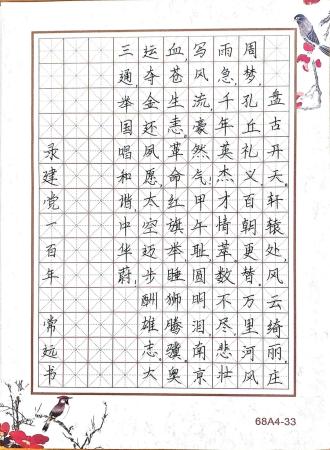 盘古开天轩辕处,风云绮丽。庄
周梦,孔丘礼义。百朝更替。万里河风
雨急,千年英杰才情萃。数不尽,悲壮
写风流,豪然气。甲午耻,圆明泪,南京
血,苍生恚。革命红旗举,睡狮腾骥。奥
运夺金还夙愿,太空迈步酬雄志。大
三通,举国唱和谐,中华蔚。
录建党一百年 常远书
68A4-33